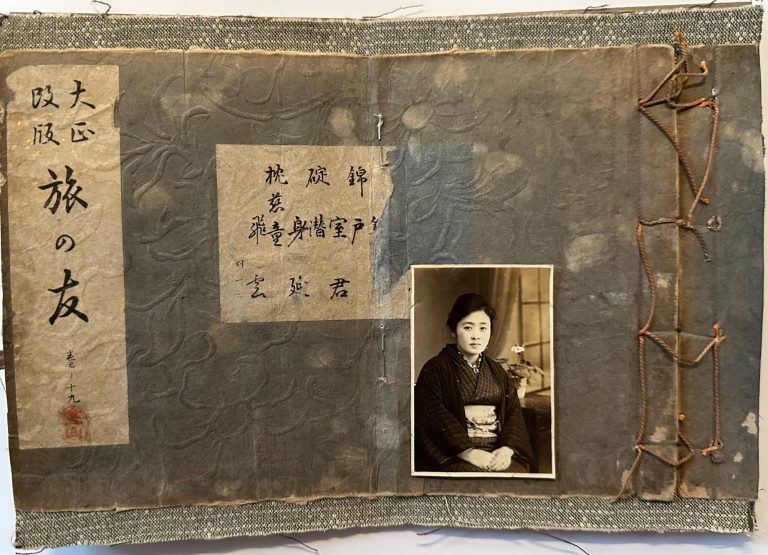 大正
改版
旅の友
巻ノ十九
錦戸
室君
碇潜
身延
枕慈童
飛雲